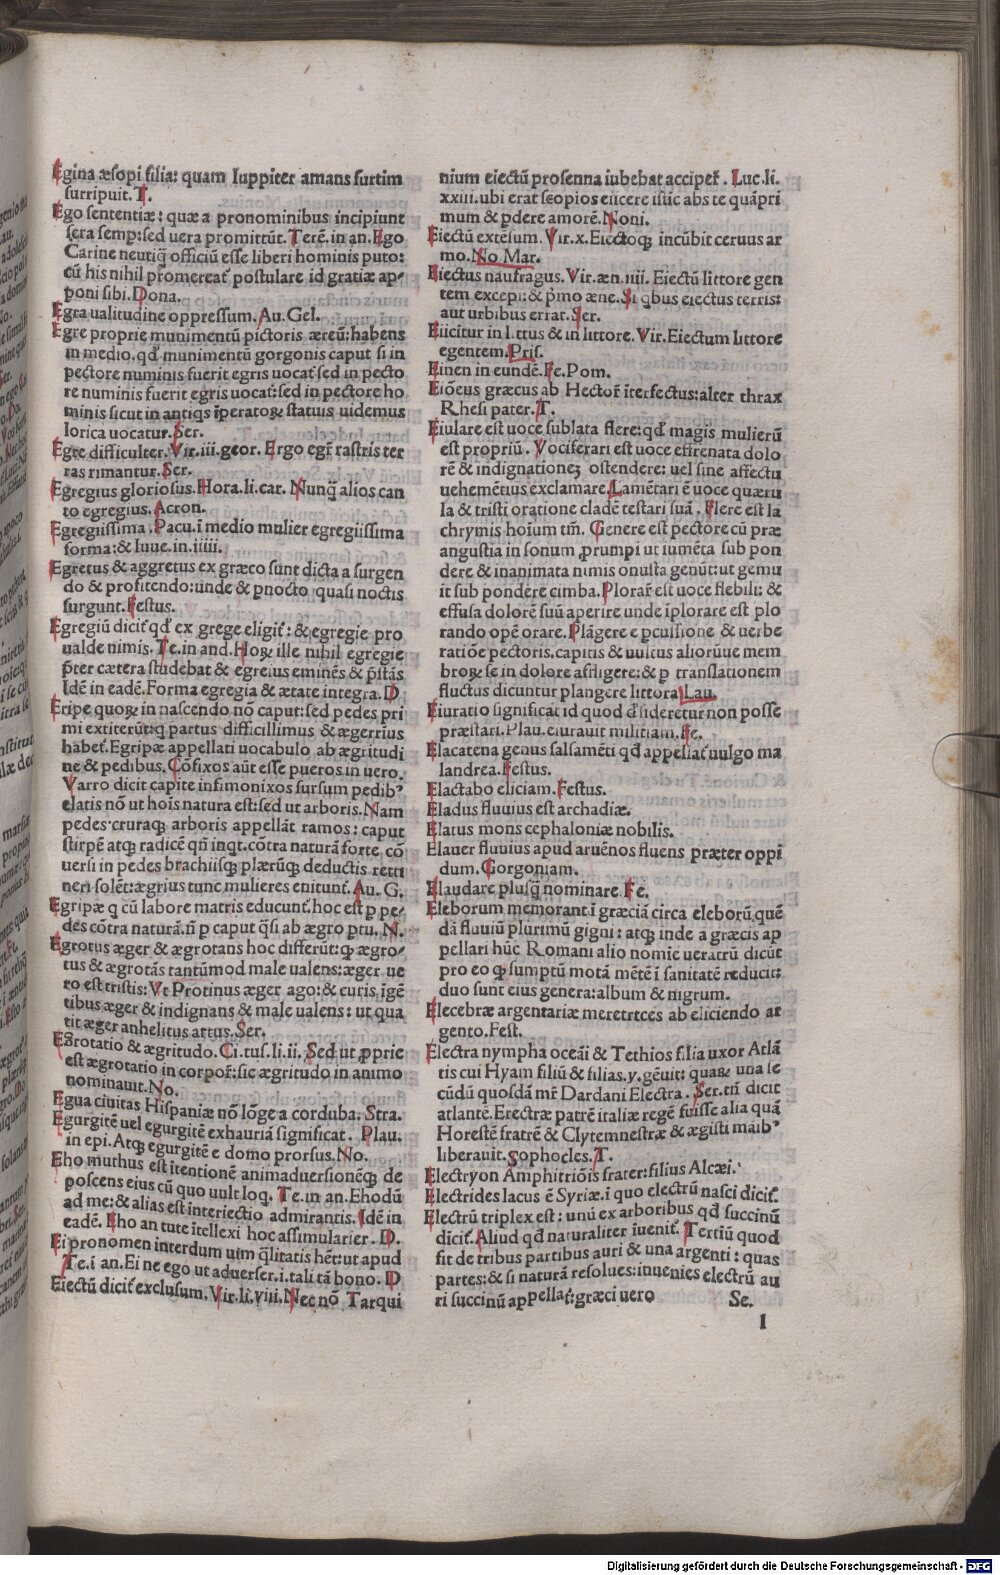 Egina æsopi filia: quam Iuppiter amans furtim
surripuit. T.
Ego sententiæ: quæ a pronominibus incipiunt
fera semp: sed uera promittūt. Terē. in an. Ego
Carine neutiq̄ officiū esse liberi hominis puto:
cū his nihil promereat postulare id gratiæ ap-
poni sibi. Dona.
Egra ualitudine oppressum. Au. Gel.
Egre proprie munimentū pictoris æreū: habens
in medio. qd munimentū gorgonis caput si in
pectore numinis fuerit egris uocat̄ sed in pecto
re numinis fuerit egris uocat̄: sed in pectore ho
minis sicut in antiqs īperatoꝝ statuis uidemus
lorica uocatur. Ser.
Egre difficulter. Vir. iii. geor. Ergo egr̄ rastris ter
ras rimantur. Ser.
Egregius gloriosus. Hora. li. car. Nunq̄ alios can
to egregius. Acron.
Egregiissima. Pacu. ī medio mulier egregiissima
forma: & Iuue. in. iiiii.
Egretus & aggretus ex græco sunt dicta a surgen
do & profitendo: unde & pnocto quasi noctis
surgunt. Festus.
Egregiū dicit̄ qd ex grege eligit̄: & egregie pro
ualde nimis. Te. in and. Hoꝝ ille nihil egregie
p̄ter cætera studebat & egreius eminēs & p̄stās
Idē in eadē. Forma egregia & ætate integra. D
Eripe quoꝝ in nascendo nō caput: sed pedes pri
mi extiterūt: q partus difficillimus & ægerrius
habet̄. Egripæ appellati uocabulo ab ægritudi
ne & pedibus. Cōfixos aūt esse pueros in uero.
Varro dicit capite infimonixos sursum pedibꝰ
elatis nō ut hoīs natura est: sed ut arboris. Nam
pedes cruraqꝫ arboris appellāt ramos: caput
stirpē atqꝫ radicē qn̄ inqt. cōtra naturā forte cō
uersi in pedes brachiisqꝫ plærūqꝫ deductis retti
neri solēt: ægrius tunc mulieres enitunt̄. Au. G.
Egripæ q cū labore matris educunt̄. hoc est p pe-
des cōtra naturā. n̄ p caput q̄si ab ægro ptu. N.
Egrotus æger & ægrotans hoc differūt: qꝫ ægro-
tus & ægrotās tantūmod male ualens: æger ue
ro est tristis: Vt Protinus æger ago: & curis īgē
tibus æger & indignans & male ualens: ut qua
tit æger anhelitus artus. Ser.
Egrotatio & ægritudo. Ci. tus. li. ii. Sed ut pprie
est ægrotatio in corpor̄: sic ægritudo in animo
nominauit. No.
Egua ciuitas Hispaniæ nō lōge a corduba. Stra.
Egurgitē uel egurgitē exhauriā significat. Plau.
in epi. Atqꝫ egurgitē e domo prorsus. No.
Eho muthus est itentionē animaduersionēqꝫ de
poscens eius cū quo uult loq. Te. in an. Ehodū
ad me: & alias est interiectio admirantis. Idē in
eadē. Eho an tute itellexi hoc assimularier. D.
Ei pronomen interdum uim q̄litatis hēt: ut apud
Te. i an. Ei ne ego ut aduerser. i. tali tā bono. D
Eiectū dicit̄ exclusum. Vir. li. viii. Nec nō Tarqui
nium eiectū prosenna iubebat acciper̄. Luc. li.
xxiii. ubi erat scopios eiicere istic abs te quāpri
mum & pdere amorē. Noni.
Eiectū extesum. Vir. x. Eiectoqꝫ incūbit ceruus ar
mo. No. Mar.
Eiectus naufragus. Vir. æn. iiii. Eiectū littore gen
tem excepi: & p̄mo æne. Si qbus eiectus terris:
aut urbibus errat. Ser.
Eiicitur in littus & in littore. Vir. Eiectum littore
egentem. Pris.
Einen in eundē. Fe. Pom.
Eiōeus græcus ab Hector̄ īterfectus: alter thrax
Rhesi pater. T.
Eiulare est uoce sublata flere: qd magis mulierū
est propriū. Vociferari est uoce effrenata dolo
rē & indignationeꝫ ostendere: uel sine affectu
uehemētius exclamare. Lamētari ē uoce quæru
la & tristi oratione cladē testari suā. Flere est la
chrymis hoīum tm̄. Genere est pectore cū præ
angustia in sonum prumpi ut iumēta sub pon
dere & inanimata nimis onusta genūt: ut gemu
it sub pondere cimba. Plorar̄ est uoce flebili: &
effusa dolorē suū aperire unde īplorare est plo
rando opē orare. Plāgere e pcussione & uerbe
ratiōe pectoris. capitis & uultus aliorūue mem
broꝝ se in dolore affligere: & p translationem
fluctus dicuntur plangere littora. Lau.
Eiuratio significat id quod d̄sideretur non posse
præstari. Plau. eiurauit militiam. Fe.
Elacatena genus salsamēti qd appellat̄ uulgo ma
landrea. Festus.
Elactabo eliciam. Festus.
Eladus fluuius est archadiæ.
Elatus mons cephaloniæ nobilis.
Elauer fluuius apud aruēnos fluens præter oppi
dum. Gorgoniam.
Elaudare plusq̄ nominare Fe.
Eleborum memorant ī græciā circa eleborū. quē
dā fluuiū plurimū gigni: atqꝫ inde a græcis ap
pellari hūc Romani alio nomīe ueratrū dicūt
pro eo qꝫ sumptū motā mētē ī sanitatē reducit:
duo sunt eius genera: album & nigrum.
Elecebræ argentariæ meretrices ab eliciendo ar
gento. Fest.
Electra nympha oceāi & Tethios filia uxor Atlā
tis cui Hyam filiū & filias. y. gēuit: quaꝝ una se
cūdū quosdā mr̄ Dardani Electra. Ser. tn̄ dicit
atlantē. Erectræ patrē italiæ regē fuisse alia quā
Horestē fratrē & Clytemnestræ & ægisti maibꝰ
liberauit. Sophocles. T.
Electryon Amphitriōis frater: filius Alcæi.
Electrides lacus ē Syriæ. i quo electrū nasci dicit̄.
Electrū triplex est: unū ex arboribus qd succinū
dicit̄. Aliud qd naturaliter īuenit̄. Tertiū quod
fit de tribus partibus auri & una argenti: quas
partes: & si naturā resolues: inuenies electrū au
ri succinū appellat̄: græci uero Se.
l
Digitalisierung gefördert durch die Deutsche Forschungsgemeinschaft - DFG